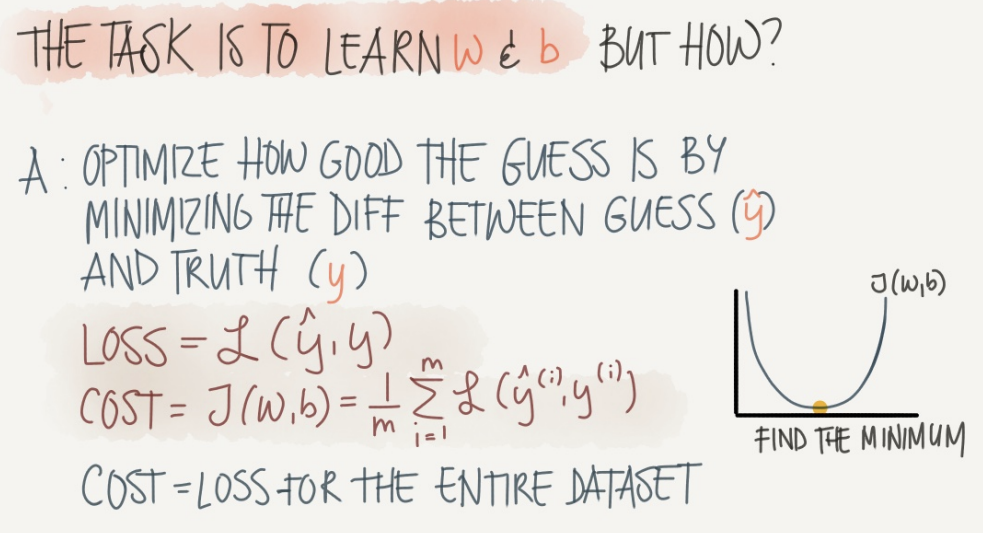 THE TASK IS TO LEARN w & b BUT HOW?
A: OPTIMIZE HOW GOOD THE GUESS IS BY
MINIMIZING THE DIFF BETWEEN GUESS (ŷ)
AND TRUTH (y)
LOSS = ℒ(ŷ, y)
COST = J(w,b) = 1/m ∑_{i=1}^{m} ℒ(ŷ^(i), y^(i))
COST = LOSS FOR THE ENTIRE DATASET
J(w,b)
FIND THE MINIMUM